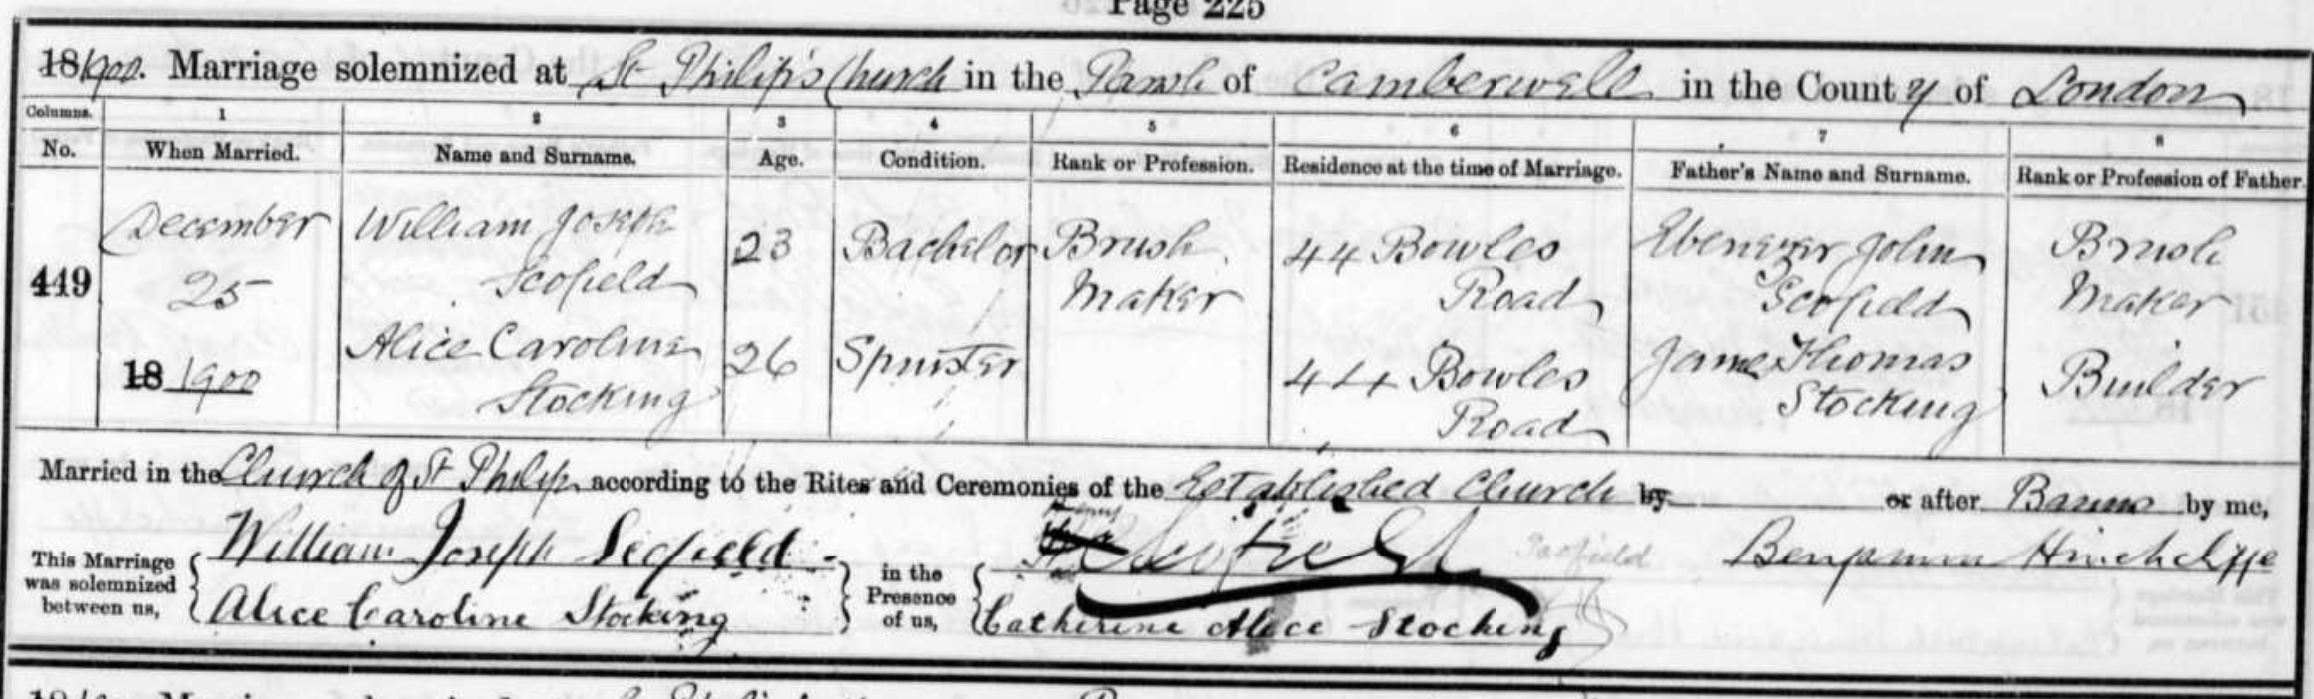 Page 225
18 1900. Marriage solemnized at St Philip's Church in the Parish of Camberwell in the County of London
Columns. 1 2 3 4 5 6 7 8
No. When Married. Name and Surname. Age. Condition. Rank or Profession. Residence at the time of Marriage. Father's Name and Surname. Rank or Profession of Father.
449 December 25 18 1900
William Joseph Scofield 23 Bachelor Brush Maker 44 Bowles Road Ebenezer John Scofield Brush Maker
Alice Caroline Stocking 26 Spinster 44 Bowles Road James Thomas Stocking Builder
Married in the Church of St Philip according to the Rites and Ceremonies of the Established Church by or after Banns by me,
This Marriage was solemnized between us, William Joseph Scofield in the Presence of us, Scofield Benjamin Hinchcliffe
Alice Caroline Stocking Catherine Alice Stocking